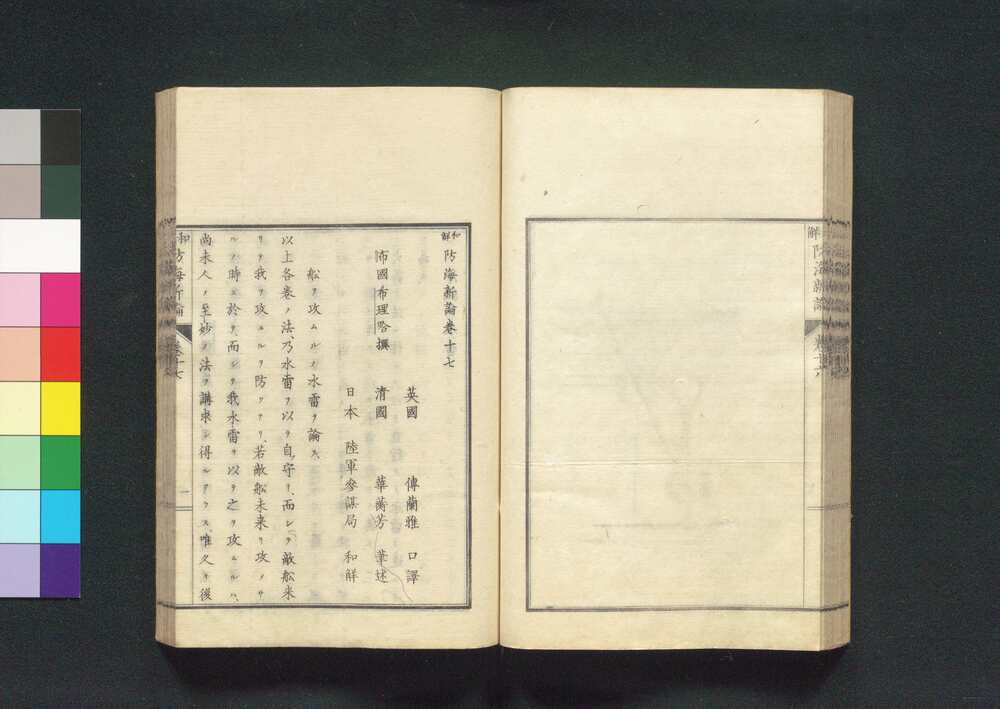 和解 防海新論卷十七
布國布理哈撰
英國 傅蘭雅 口譯
清國 華蘅芳 筆述
日本 陸軍參謀局 和解
船ヲ攻ムルノ水雷ヲ論ス
以上各卷ノ法、乃水雷ヲ以テ自守リ、而シテ敵船来
リテ我ヲ攻ムルヲ防クナリ、若敵船未来リ攻メサ
ルノ時ニ於テ、而シテ我水雷ヲ以テ之ヲ攻ムルハ、
尚未人ノ至妙ノ法ヲ講求シ得ルアラス、唯久キ後
和
防海新論
卷十七
一
解 防海新論